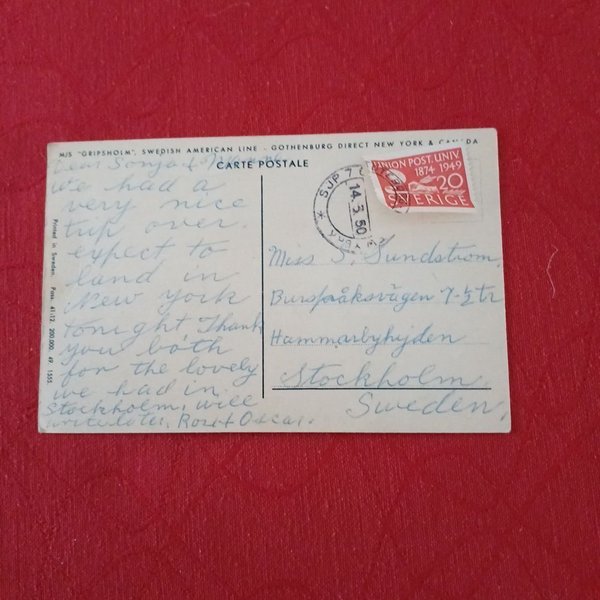 M/S "GRIPSHOLM", SWEDISH AMERICAN LINE - GOTHENBURG DIRECT NEW YORK & CANADA
CARTE POSTALE
Dear Sonja &
We had a
very nice
trip over.
expect to
land in
New York
tonight Thank
you both
for the lovely
we had in
Stockholm, will
write later, Rose & Oscar.
Printed in Sweden. Pass. 41:12. 200.000. 49. 1555.
SJP 7
14.5.50
UNION POST. UNIV.
1874 1949
20
SVERIGE
Miss S. Sundstrom,
Burspråksvägen 7-½ tr
Hammarbyhöjden
Stockholm
Sweden,